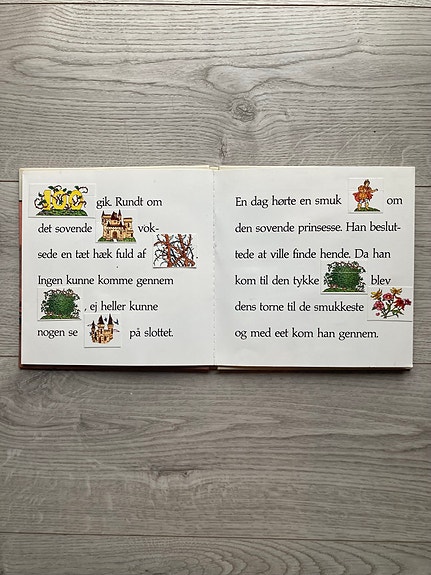 100 gik. Rundt om
det sovende vok-
sede en tæt hæk fuld af
Ingen kunne komme gennem
, ej heller kunne
nogen se på slottet.
En dag hørte en smuk om
den sovende prinsesse. Han beslut-
tede at ville finde hende. Da han
kom til den tykke blev
dens torne til de smukkeste
og med eet kom han gennem.